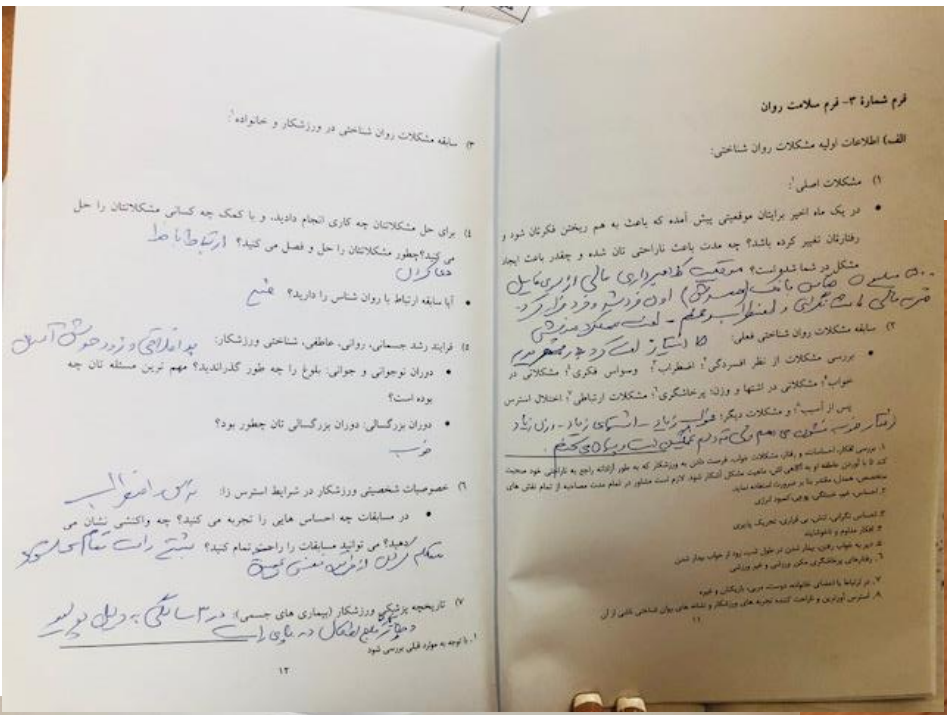 فرم شمارۀ ۳- فرم سلامت روان
الف) اطلاعات اولیه مشکلات روان شناختی:
۱) مشکلات اصلی۱:
• در یک ماه اخیر برایتان موقعیتی پیش آمده که باعث به هم ریختن فکرتان شود و
رفتارتان تغییر کرده باشد؟ چه مدت باعث ناراحتی تان شده و چقدر باعث ایجاد
مشکل در شما شده است؟ موقعیت کلاهبرداری مالی از
۵۰۰ بانک اون فرد و فرار کرد
مالی
۲) سابقه مشکلات روان شناختی فعلی:
• بررسی مشکلات از نظر افسردگی۲؛ اضطراب۳؛ وسواس فکری۴؛ مشکلاتی در
خواب۵؛ مشکلاتی در اشتها و وزن؛ پرخاشگری۶؛ مشکلات ارتباطی۷؛ اختلال استرس
پس از آسیب۸؛ و مشکلات دیگر: خواب زیاد - اشتهای زیاد - وزن زیاد
رفتار خوب نشون می دهم ولی ته دلم غمگین است
۱. بررسی افکار، احساسات، و رفتار، مشکلات خواب، فرصت دادن به ورزشکار که به طور آزادانه راجع به ناراحتی خود صحبت
کند تا با آوردن عاطفه او به آگاهی اش، ماهیت مشکل آشکار شود. لازم است مشاور در تمام مدت مصاحبه از تمام نقش های
متخصص، همدل، مقتدر بنا بر ضرورت استفاده نماید.
۲. احساس غم، خستگی، پوچی، کمبود انرژی
۳. احساس نگرانی، تنش، بی قراری، تحریک پذیری
۴. افکار مداوم و ناخوشایند
۵. دیر به خواب رفتن، بیدار شدن در طول شب، زود از خواب بیدار شدن
۶. رفتارهای پرخاشگری مکن ورزشی و غیر ورزشی
۷. در ارتباط با اعضای خانواده، دوست، مربی، بازیکنان و غیره
۸. استرس آورترین و ناراحت کننده تجربه های ورزشکار و نشانه های روان شناختی ناشی از آن
۱۱
۳) سابقه مشکلات روان شناختی در ورزشکار و خانواده۱:
٤) برای حل مشکلاتتان چه کاری انجام دادید، و با کمک چه کسانی مشکلاتتان را حل
می کنید؟چطور مشکلتان را حل و فصل می کنید؟ ارتباط با خدا
• آیا سابقه ارتباط با روان شناس را دارید؟
۵) فرایند رشد جسمانی، روانی، عاطفی، شناختی ورزشکار: بد اخلاقی و زود جوش آمدن
• دوران نوجوانی و جوانی: بلوغ را چه طور گذراندید؟ مهم ترین مسئله تان چه
بوده است؟
• دوران بزرگسالی: دوران بزرگسالی تان چطور بود؟
خوب
۶) خصوصیات شخصیتی ورزشکار در شرایط استرس زا: ترس اضطراب
• در مسابقات چه احساس هایی را تجربه می کنید؟ چه واکنشی نشان می
دهید؟ می توانید مسابقات را راحت تمام کنید؟
۷) تاریخچه پزشکی ورزشکار (بیماری های جسمی): در ۳ سالگی به دلیل
دچار فلج اطفال در پای راست
۱. با توجه به موارد قبلی بررسی شود
۱۲